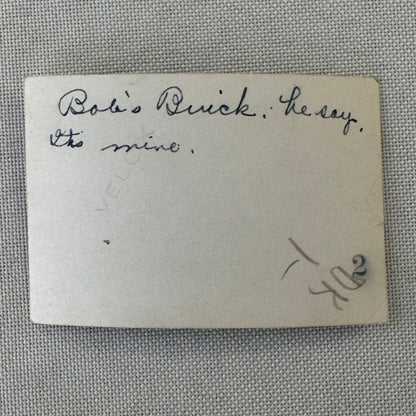 Bob's Buick. he say,
Its mine.
VELO
2